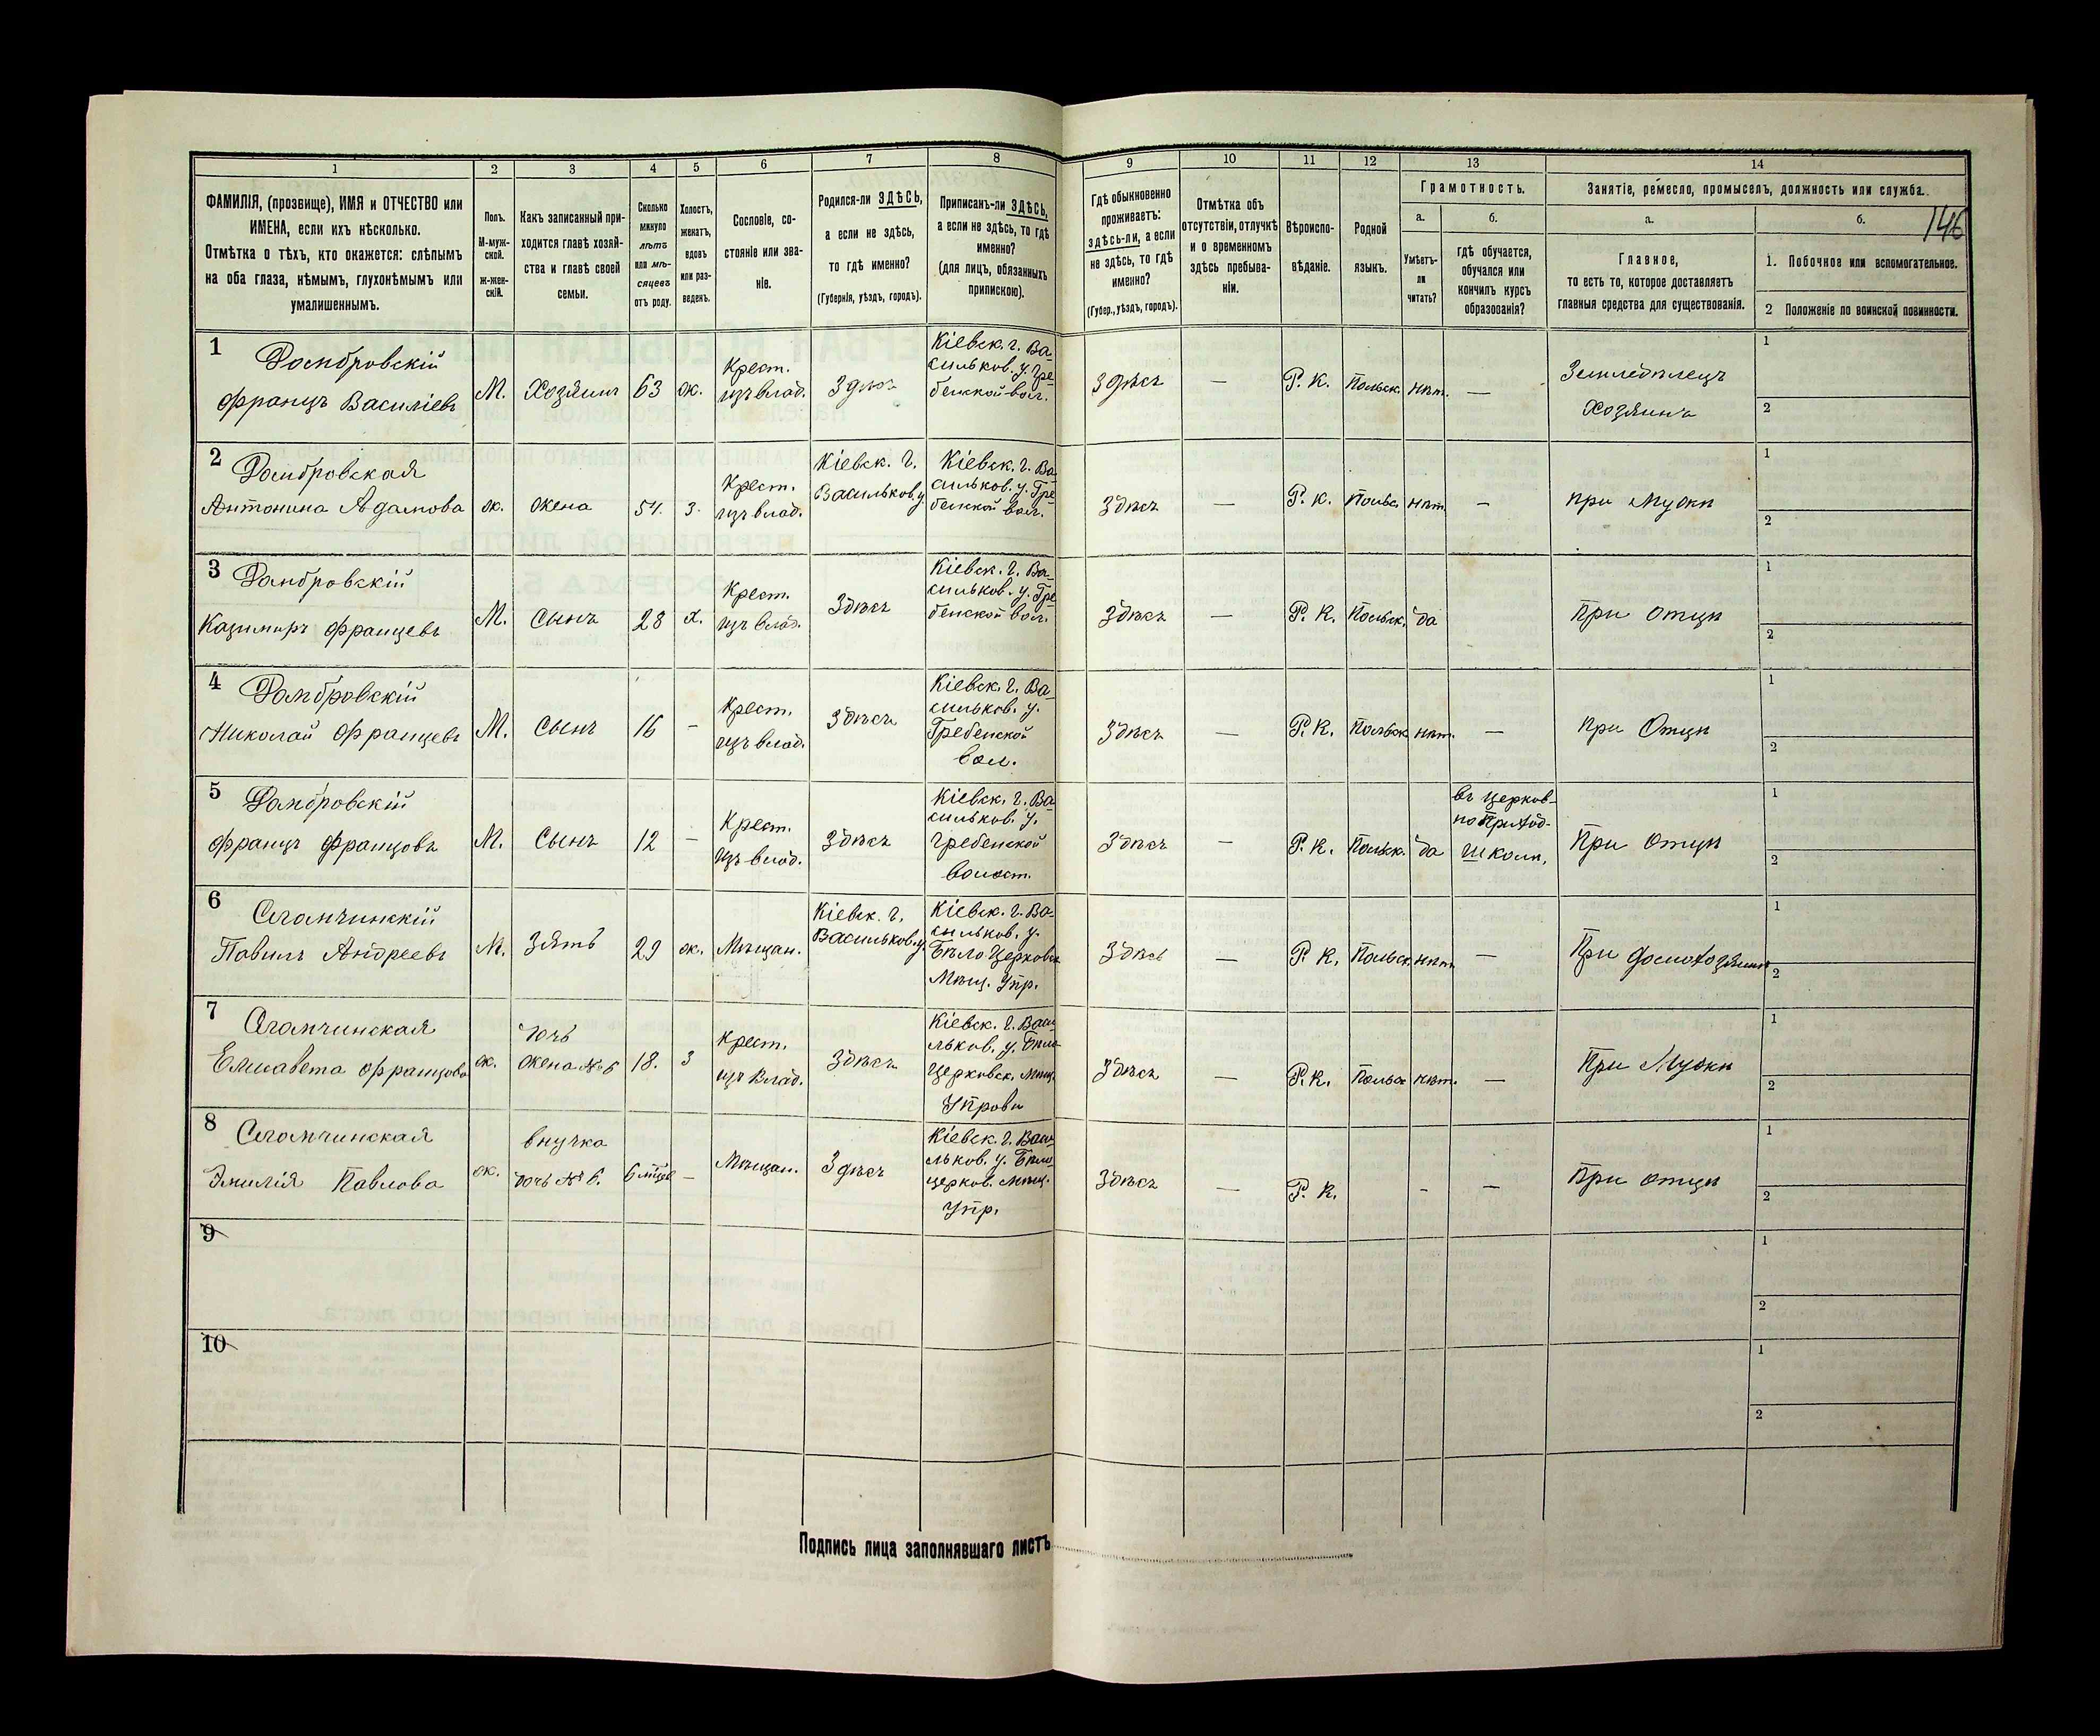 1
2
3
4
5
6
7
8
9
10
11
12
13
14
ФАМИЛІЯ, (прозвище), ИМЯ и ОТЧЕСТВО или
ИМЕНА, если ихъ нѣсколько.
Отмѣтка о тѣхъ, кто окажется: слѣпымъ
на оба глаза, нѣмымъ, глухонѣмымъ или
умалишеннымъ.
Полъ.
М-муж-
ской.
ж-жен-
скій.
Какъ записанный при-
ходится главѣ хозяй-
ства и главѣ своей
семьи.
Сколько
минуло
лѣтъ
или мѣ-
сяцевъ
отъ роду.
Холостъ,
женатъ,
вдовъ
или раз-
веденъ.
Сословіе, со-
стояніе или зва-
ніе.
Родился-ли ЗДѢСЬ,
а если не здѣсь,
то гдѣ именно?
(Губернія, уѣздъ, городъ).
Приписанъ-ли ЗДѢСЬ,
а если не здѣсь, то гдѣ
именно?
(для лицъ, обязанныхъ
припискою).
Гдѣ обыкновенно
проживаетъ:
здѣсь-ли, а если
не здѣсь, то гдѣ
именно?
(Губер., уѣздъ, городъ).
Отмѣтка объ
отсутствіи, отлучкѣ
и о временномъ
здѣсь пребыва-
ніи.
Вѣроиспо-
вѣданіе.
Родной
языкъ.
Грамотность.
а.
Умѣетъ-
ли
читать?
б.
гдѣ обучается,
обучался или
кончилъ курсъ
образованія?
Занятіе, ремесло, промыселъ, должность или служба.
а.
Главное,
то есть то, которое доставляетъ
главныя средства для существованія.
б.
146
1. Побочное или вспомогательное.
2 Положеніе по воинской повинности.
1
Домбровскій
Францъ Василіевъ
М.
Хозяинъ
63
ж.
Крест.
изъ влад.
Здѣсь
Кіевск. г. Ва-
сильков. у. Гре-
бенской вол.
Здѣсь
—
Р. К.
Польск.
нѣт.
—
Земледѣлецъ
Хозяинъ
1
2
2
Домбровская
Антонина Адамова
ж.
жена
54.
з.
Крест.
изъ влад.
Кіевск. г.
Васильков. у
Кіевск. г. Ва-
сильков. у. Гре-
бенской вол.
Здѣсь
—
Р. К.
Польск.
нѣт.
—
при мужѣ
1
2
3
Домбровскій
Казимиръ Францевъ
М.
Сынъ
28
х.
Крест.
изъ влад.
Здѣсь
Кіевск. г. Ва-
сильков. у. Гре-
бенской вол.
Здѣсь
—
Р. К.
Польск.
да
при отцѣ
1
2
4
Домбровскій
Николай Францевъ
М.
Сынъ
16
—
Крест.
изъ влад.
Здѣсь
Кіевск. г. Ва-
сильков. у.
Гребенской
вол.
Здѣсь
—
Р. К.
Польск.
нѣт.
—
при Отцѣ
1
2
5
Домбровскій
Францъ Францовъ
М.
Сынъ
12
—
Крест.
изъ влад.
Здѣсь
Кіевск. г. Ва-
сильков. у.
Гребенской
волост.
Здѣсь
—
Р. К.
Польск.
да
въ Церков-
но Приход-
Школѣ.
При отцѣ
1
2
6
Павилъ Андреевъ
М.
Зять
29
ж.
Мѣщан.
Кіевск. г.
Васильков. у
Кіевск. г. Ва-
сильков. у.
Бѣло Церковск
Мѣщ. Упр.
Здѣсь
—
Р. К.
Польск.
нѣт.
—
При домохозяинѣ
1
2
7
Елисавета Францова
ж.
дочь
жена № 6
18.
з
Крест.
изъ Влад.
Здѣсь
Кіевск. г. Васи-
льков. у. Бѣло-
Церковск. Мѣщ.
Управы
Здѣсь
—
Р. К.
Польск
нѣт.
—
При Мужѣ
1
2
8
Эмилія Павлова
ж.
внучка
дочь № 6.
6 мѣсц
—
Мѣщан.
Здѣсь
Кіевск. г. Васи-
льков. у. Бѣло-
церков. мѣщ.
Упр.
Здѣсь
—
Р. К.
-
—
При отцѣ
1
2
9
1
2
10
1
2
Подпись лица заполнявшаго листъ